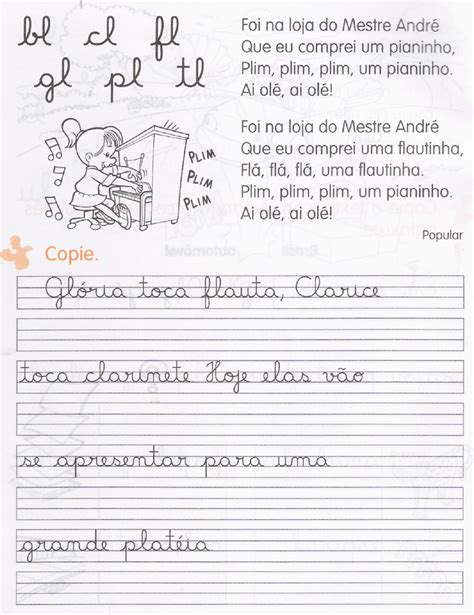 bl cl fl
gl pl tl
Foi na loja do Mestre André
Que eu comprei um pianinho,
Plim, plim, plim, um pianinho.
Ai olé, ai olé!
Foi na loja do Mestre André
Que eu comprei uma flautinha,
Flá, flá, flá, uma flautinha.
Plim, plim, plim, um pianinho.
Ai olé, ai olé!
Popular
PLIM
PLIM
PLIM
Copie.
Glória toca flauta, Clarice
toca clarinete Hoje elas vão
se apresentar para uma
grande platéia